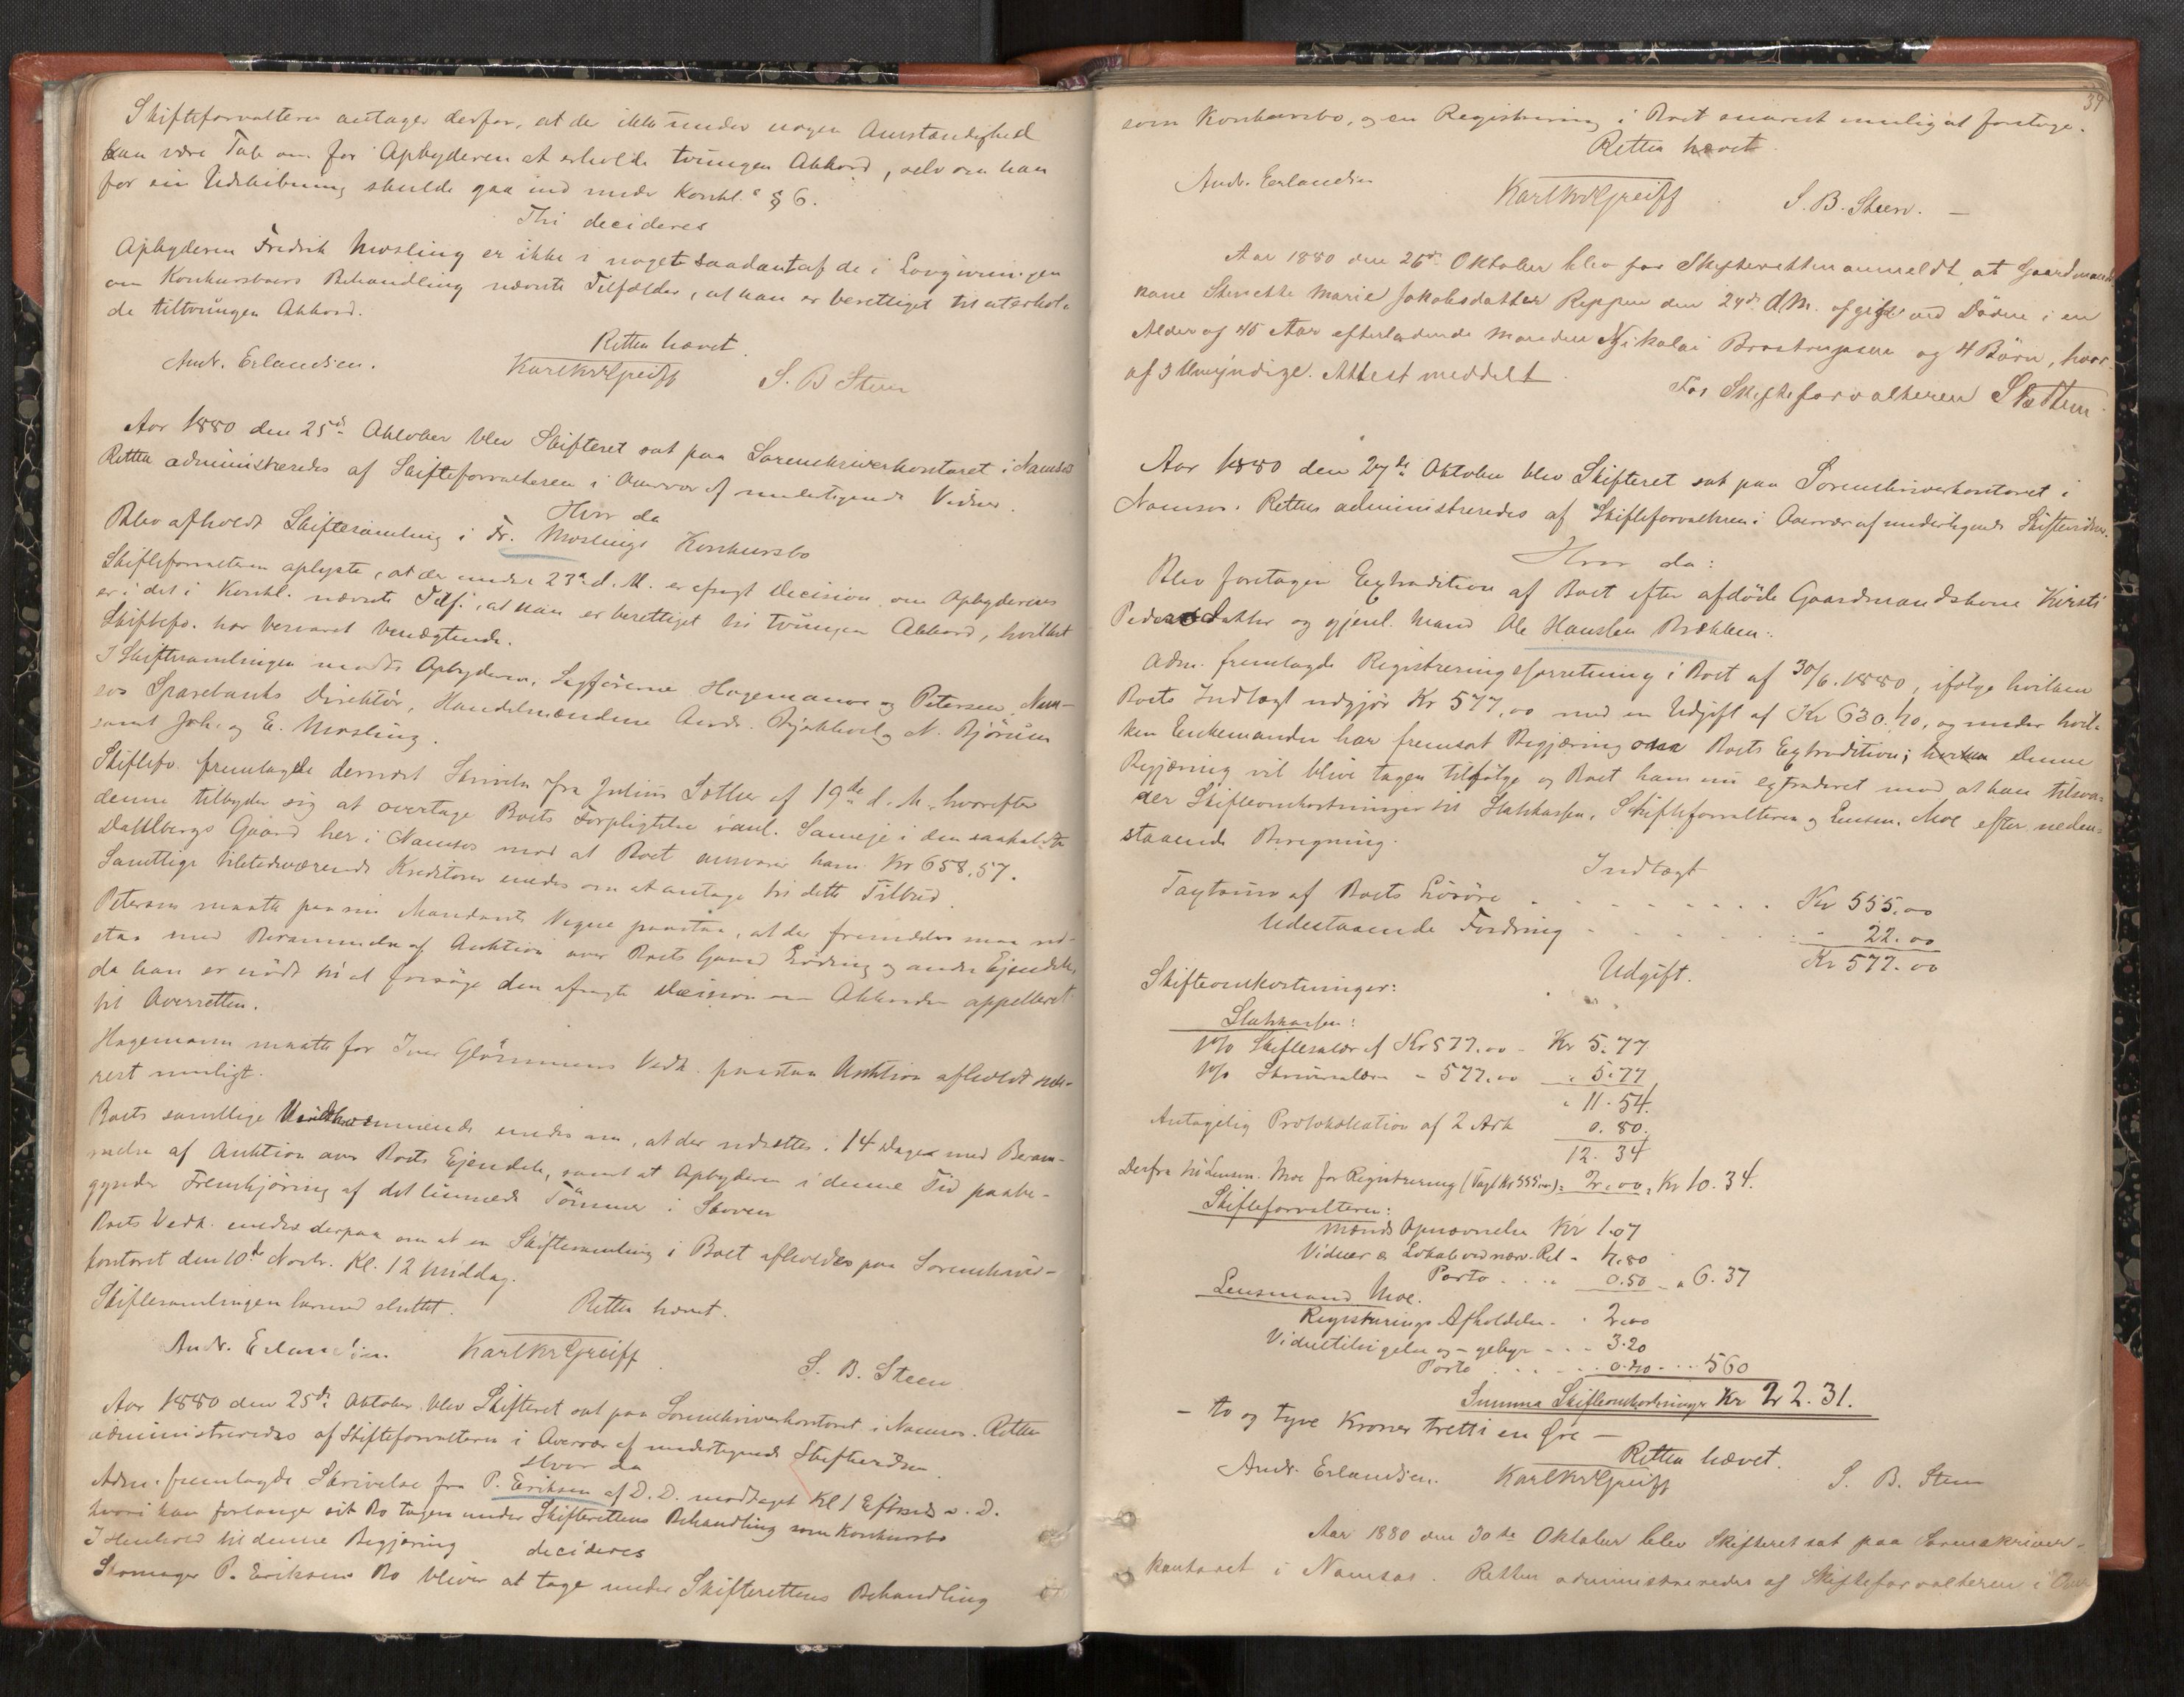 Skifteforvalteren antager derfor, at der ikke under nogen Omstændighed
kan være Tale om for Opbyderen at erholde tvungen Akkord, selv om han
for sin Udskibning skulde gaa ind under Konkl. § 6.
Thi decideres
Opbyderen Fredrik Mosling er ikke i noget saadant af de i Lovgivningen
om Konkursboers Behandling nævnte Tilfælder, at han er berettiget til at erhol-
de tiltvungen Akkord.
Retten hævet.
Andr. Erlandsen. KarlKrGreiff S. B Steen
Aar 1880 den 25de Oktober blev Skifteret sat paa Sorenskriverkontoret i Namsos
Retten administreredes af Skifteforvalteren i Overvær af undertegnede Vidner.
Hvor da
Blev afholdt Skiftesamling i Fr. Moslings Konkursbo
Skifteforvalteren oplyste, at der under 23de d. M. er afsagt Decision om Opbyderens
er i det i Konkl. nævnte Tilf., at han er berettiget til tvungen Akkord, hvilket
Skiftefo. har besvaret benægtende.
I Skiftesamlingen mødte Opbyderen, Sagførerne Hagemann og Petersen, Nam-
sos Sparebanks Direktør, Handelsmændene Andr. og N. Bjørum
samt Joh. og E. Mosling.
Skiftefo. fremlagde dernæst Skrivelse fra Julius Sother af 19de d. M., hvorefter
denne tilbyder sig at overtage Boets Forpligtelse i den saakaldte
Dahlbergs Gaard her i Namsos mod at Boet ansvarer ham Kr 658,57.
Samtlige tilstedeværende Kreditorer enedes om at antage til dette Tilbud.
Petersen maatte paa sin Mandants Vegne paastaa, at der fremdeles maa ud-
staa med Berammelse af Auktion over Boets Gaard og andre Ejendele,
da han er nødt til at forsøge den afsagte Decision om Akkorden appelleret
til Overretten.
Hagemann maatte for Iver Vedk. paastaa Auktion afholdt sna-
rest muligt.
Boets samtlige Vedkommende enedes om, at der udsættes i 14 Dage med Beram-
melse af Auktion over Boets Ejendele, samt at Opbyderen i denne Tid paabe-
gynder Fremkjøring af det Tømmer i Skoven
Boets Vedk. enedes derpaa om at en Skiftesamling i Boet afholdes paa Sorenskriver-
kontoret den 10de Novbr. Kl. 12 Middag.
Skiftesamlingen hermed sluttet. Retten hævet.
Andr. Erlandsen. KarlKrGreiff S. B. Steen
Aar 1880 den 25de Oktober blev Skifteret sat paa Sorenskriverkontoret i Namsos. Retten
administreredes af Skifteforvalteren i Overvær af undertegnede Skiftevidner.
Hvor da
Adm. fremlagde Skrivelse fra P. Eriksen af D. D. modtaget Kl 1 Efterm. s. D.
hvori han forlanger sit Bo tagen under Skifterettens Behandling som Konkursbo
I Henhold til denne Begjæring decideres
Skomager P. Eriksens Bo bliver at tage under Skifterettens Behandling
39
som Konkursbo, og en Registrering i Boet snarest muligst at foretage.
Retten hævet.
Andr. Erlandsen KarlKrGreiff S. B. Steen. —
Aar 1880 den 26de Oktober blev for Skifteretten anmeldt, at Gaardmands
kone Marie Jakobsdatter Reppen den 24de d.M. afgik ved Døden i en
Alder af 45 Aar efterladende Manden Nikolai og 4 Børn, hvor-
af 3 Umyndige. Attest meddelt
For Skifteforvalteren
Aar 1880 den 27de Oktober blev Skifteret sat paa Sorenskriverkontoret i
Namsos. Retten administreredes af Skifteforvalteren i Overvær af undertegnede Skiftevidner.
Hvor da:
Blev foretagen Extradition af Boet efter afdøde Gaardmandskone Kirsti
Pedersdatter og gjenl. Mand Ole Hansen Brækken.
Adm. fremlagde Registreringsforretning i Boet af 30/6.1880, ifølge hvilken
Boets Indtægt udgjør Kr 577,00 med en Udgift af Kr 630.40, og under hvil-
ken Enkemanden har fremsat Begjæring om Boets Extradition; denne
Begjæring vil blive tagen tilfølge og Boet ham nu extraderet mod at han tilsva-
der Skifteomkostninger til Statskassen, Skifteforvalteren og Lensm. Moe efter neden-
staaende Beregning.
Indtægt
Taxtsum af Boets Løsøre . . . . . . . . Kr 555.00
Udestaaende Fordring . . . . . . " 22.00
Kr 577.00
Udgift.
Skifteomkostninger:
Statskassen:
1% Skiftesalær af Kr 577.00 - Kr 5.77
1% Skriversalær - 577.00 - " 5.77
" 11.54.
Antagelig Protokollation af 2 Ark 0.80.
12.34
Derfra til Lensm. Moe for Registrering (Taxt Kr 555,00) = 2.00 = Kr 10.34.
Skifteforvalteren:
Mænds Opnævnelse Kr 1.07
Vidner & Lokale ved nærv. Ret - 4.80
Porto . . . . 0.50 - " 6.37
Lensmand Moe.
Registrerings Afholdelse - . 2.00
Vidnetilsigelse og -gebyr - - - 3.20
Porto . . . . - 0.40 - . . 560
Summa Skifteomkostninger Kr 22.31.
- to og tyve Kroner tretti en Øre —
Retten hævet.
Andr. Erlandsen. KarlKrGreiff S. B. Steen
Aar 1880 den 30de Oktober blev Skifteret sat paa Sorenskriver-
kontoret i Namsos. Retten administreredes af Skifteforvalteren i Over